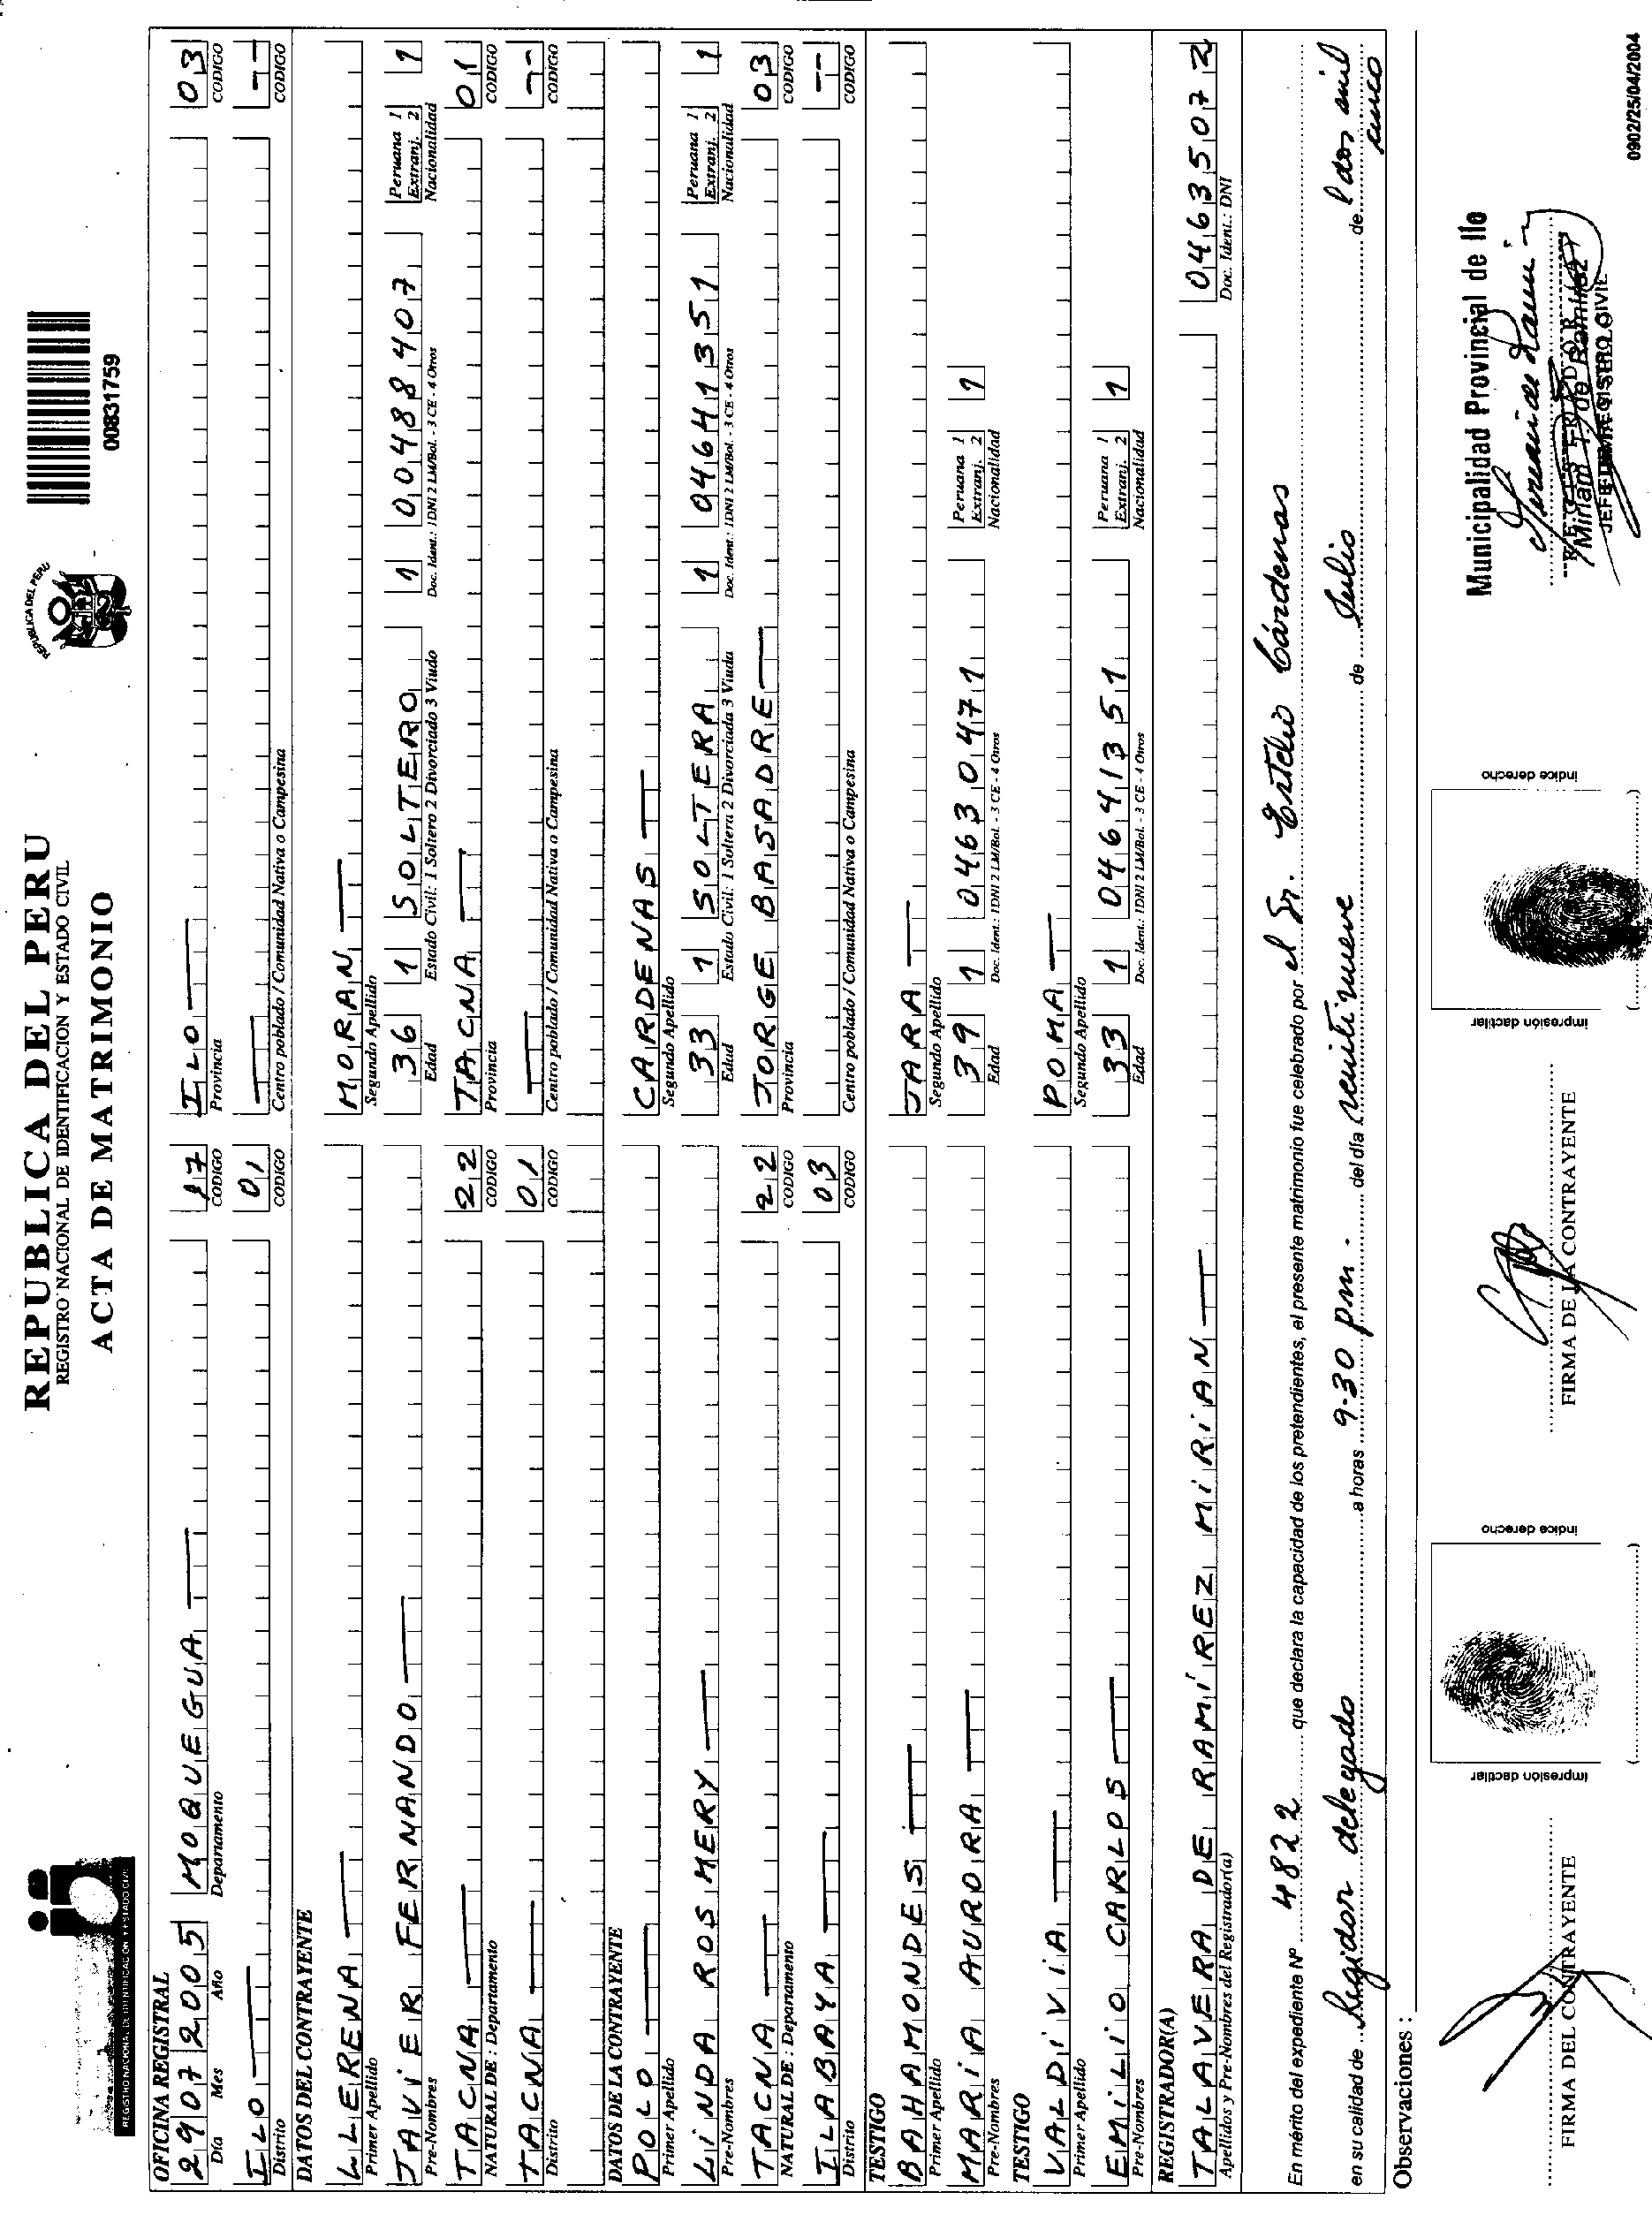 REPUBLICA DEL PERU
REGISTRO NACIONAL DE IDENTIFICACION Y ESTADO CIVIL
ACTA DE MATRIMONIO
REGISTRO NACIONAL DE IDENTIFICACION Y ESTADO CIVIL
REPUBLICA DEL PERU
00831759
OFICINA REGISTRAL
29 07 2005 MOQUEGUA 17 ILO 03
Día Mes Año Departamento CODIGO Provincia CODIGO
ILO 01 --
Distrito CODIGO Centro poblado / Comunidad Nativa o Campesina CODIGO
DATOS DEL CONTRAYENTE
LLERENA MORAN
Primer Apellido Segundo Apellido
JAViER FERNANDO 36 1 SOLTERO 1 00488407 Peruana 1 Extranj. 2 1
Pre-Nombres Edad Estado Civil: 1 Soltero 2 Divorciado 3 Viudo Doc. Ident.: 1DNI 2 LM/Bol. - 3 CE - 4 Otros Nacionalidad
TACNA 22 TACNA 01
NATURAL DE : Departamento CODIGO Provincia CODIGO
TACNA 01 --
Distrito CODIGO Centro poblado / Comunidad Nativa o Campesina CODIGO
DATOS DE LA CONTRAYENTE
POLO CARDENAS
Primer Apellido Segundo Apellido
LiNDA ROSMERY 33 1 SOLTERA 1 04641351 Peruana 1 Extranj. 2 1
Pre-Nombres Edad Estado Civil: 1 Soltera 2 Divorciada 3 Viuda Doc. Ident.: 1DNI 2 LM/Bol. - 3 CE - 4 Otros Nacionalidad
TACNA 22 JORGE BASADRE 03
NATURAL DE : Departamento CODIGO Provincia CODIGO
ILABAYA 03 --
Distrito CODIGO Centro poblado / Comunidad Nativa o Campesina CODIGO
TESTIGO
BAHAMONDES JARA
Primer Apellido Segundo Apellido
MARiA AURORA 39 1 04630471 Peruana 1 Extranj. 2 1
Pre-Nombres Edad Doc. Ident.: 1DNI 2 LM/Bol. - 3 CE - 4 Otros Nacionalidad
TESTIGO
VALDiViA POMA
Primer Apellido Segundo Apellido
EMiLiO CARLOS 33 1 04641351 Peruana 1 Extranj. 2 1
Pre-Nombres Edad Doc. Ident.: 1DNI 2 LM/Bol. - 3 CE - 4 Otros Nacionalidad
REGISTRADOR(A)
TALAVERA DE RAMÍREZ MiRiAN 04635072
Apellidos y Pre-Nombres del Registrador(a) Doc. Ident.: DNI
En mérito del expediente Nº 4822 que declara la capacidad de los pretendientes, el presente matrimonio fue celebrado por el Sr. Cárdenas
en su calidad de Regidor delegado a horas 9.30 pm. del día veintinueve de Julio de l dos mil cinco
Observaciones :
FIRMA DEL CONTRAYENTE
impresión dactilar
índice derecho
FIRMA DE LA CONTRAYENTE
impresión dactilar
índice derecho
Municipalidad Provincial de Ilo
REGISTRADOR
Miriam T. de Ramirez
JEFE REGISTRO CIVIL
0902/25/04/2004